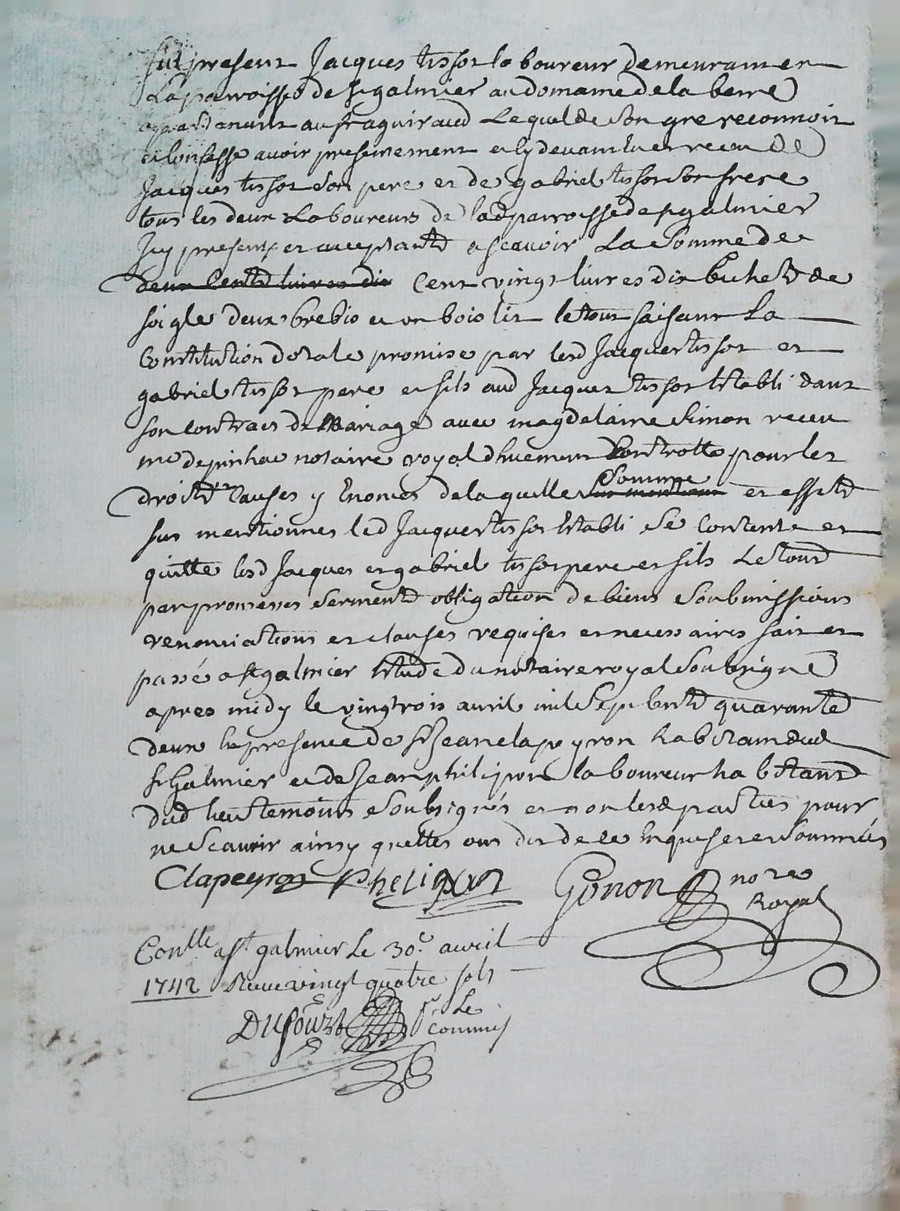 fut present Jacques tissot laboureur demeurant en
La parroisse de st galmier au domaine de la berre
apartenant au sr aguiraud Lequel de son gre reconnoit
et confesse avoir presentement et cy devant eu et receu de
Jacques tissot son pere et de gabriel tissot son frere
tous les deux Laboureurs de lad parroisse de st galmier
Icy presents et acceptants a scavoir La somme de
deux Cents livres dix Cent vingt livres dix bichets de
soigle deux brebis et un bois lit le tout faisant La
Constitution dotale promise par lesd Jacques tissot et
gabriel tissot pere et fils aud Jacques tissot Establi dans
son contract de Mariage avec magdelaine Simon receu
me depinhac notaire royal Controlle pour les
droits causes y Enonces de la quelle somme et effets
sus mentionnes led Jacques tissot Establi se contente et
quitte lesd Jacques et gabriel tissot pere et fils Le tout
par promesses serments obligation de biens soubmissions
renonciations et clauses requises et necessaires fait et
passé a st galmier Etude du notaire royal soubsigné
apres midy le vingtrois avril mil sept cents quarante
deux En presence de sr Jean clapeyron habitant dud
st Galmier et de Jean philipon laboureur habitant
dud lieu temoins soubsignés et non lesd parties pour
ne scavoir ainsy quelles ont dit de ce Enquises et sommées
Clapeyron Pheligon Gonon nore
Royal
Conlle a st galmier Le 30e avril
1742 Receu vingt quatre sols
Dufour Le
commis